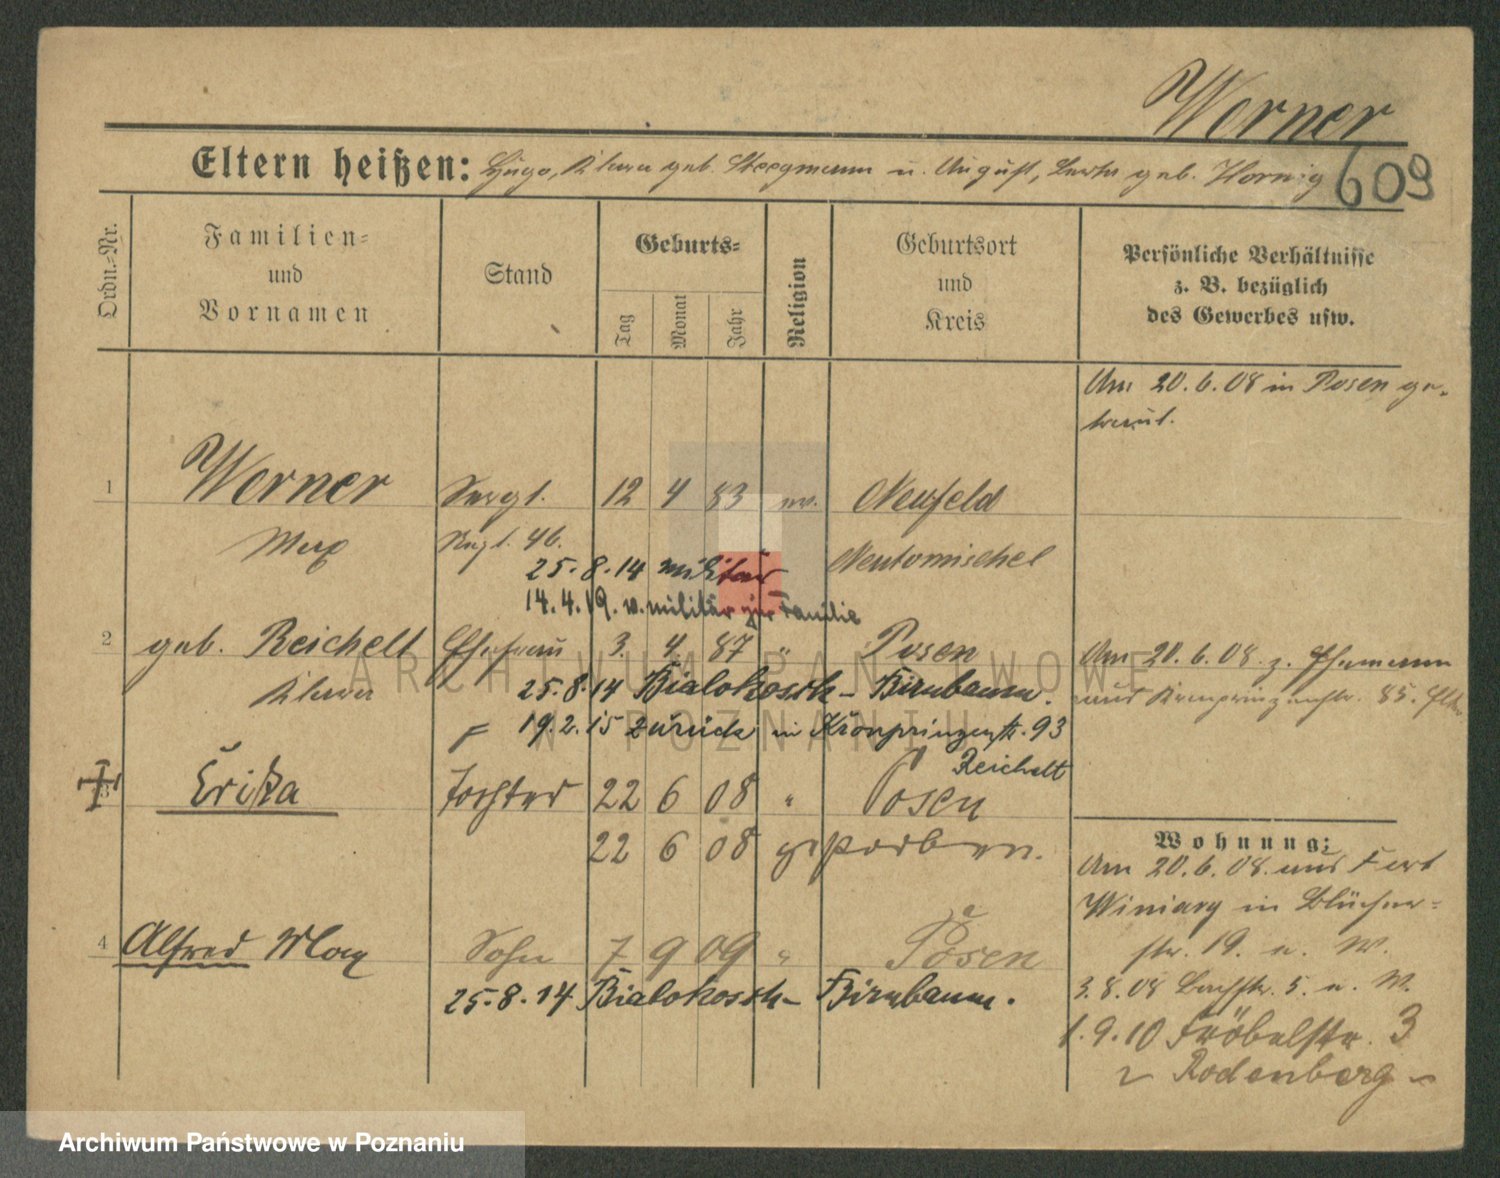 Werner
Eltern heißen: Hugo, Klara geb. Steegmann u. August, Berta geb. Hornig
609
Ordn.-Nr.
Familien-
und
Vornamen
Stand
Geburts-
Tag
Monat
Jahr
Religion
Geburtsort
und
Kreis
Persönliche Verhältnisse
z. B. bezüglich
des Gewerbes usw.
Am 20. 6. 08 in Posen ge-
traut.
1 Werner Sergt. 12 4 83 ev. Neufeld
Max Regt. 46. Neutomischel
25. 8. 14 militär
14. 4. 19. v. militär zur Familie
2 geb. Reichelt Ehefrau 3. 4. 87 " Posen
Klara 25. 8. 14 Bialokosch - Birnbaum.
19. 2. 15 zurück in Kronprinzenstr. 93
Reichelt
Am 20. 6. 08. z. Ehemann
aus Kronprinzenstr. 85.
3 Erika Tochter 22 6 08 " Posen
22 6 08 gestorben.
4 Alfred Max Sohn 7 9 09 " Posen
25. 8. 14 Bialokosch - Birnbaum.
Wohnung:
Am 20. 6. 08. aus Fort
Winiary in Blücher-
str. 19. u. W.
3. 8. 08 Bachstr. 5. u. W.
1. 9. 10 Fröbelstr. 3
Rodenberg
ARCHIWUM PAŃSTWOWE
W POZNANIU
Archiwum Państwowe w Poznaniu